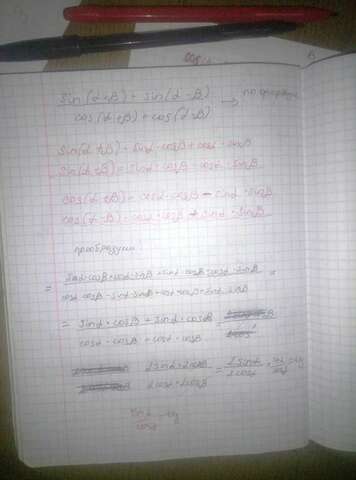 sin(α+β) + sin(α-β)
cos(α+β) + cos(α-β)
sin(α+β) = sinα·cosβ + cosα·sinβ
sin(α-β) = sinα·cosβ - cosα·sinβ
cos(α+β) = cosα·cosβ - sinα·sinβ
cos(α-β) = cosα·cosβ + sinα·sinβ
преобразуем:
= sinα·cosβ + cosα·sinβ + sinα·cosβ - cosα·sinβ =
cosα·cosβ - sinα·sinβ + cosα·cosβ + sinα·sinβ
= sinα·cosβ + sinα·cosβ =
cosα·cosβ + cosα·cosβ
2sinα·2cosβ = 2sinα
2cosα·2cosβ 2cosα
sinα
cosα